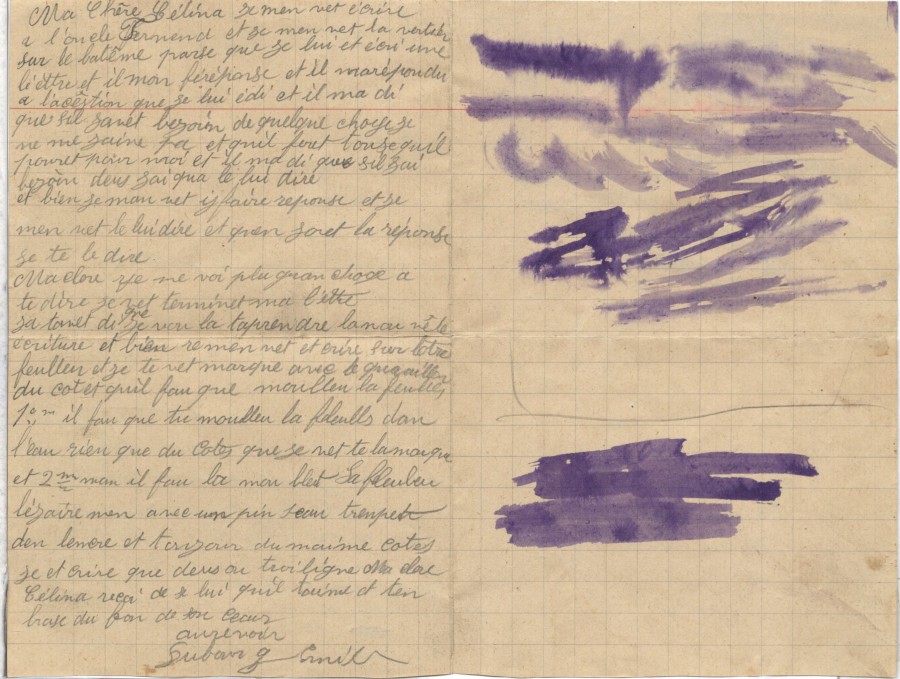 Ma Chère Célina je men vet écrire
a l'oncle Fernend et je men vet la
sur le batême parse que je lui et écri une
léttre et il mon féréponse et il marépondu
a l'acéstion que je lui édi et il ma di
que sil zavet bezoin de quelque choge je
ne me jaine pa et quil feret tousequil
pouret pour moi et il ma di que sil zai
bezoin deus zai qua le lui dire
et bien je man vet ij faire reponse et je
men vet le lui dire et quen joret la réponse
je te le dire.
Ma clere ye ne voi plu gran choge a
te dire je vet terminet ma létte
ja tavet di que la taprendre la nou
écriture et bien je men vet et crire sur lotre
feullen et je te vet marque avec le
du cotet quil fau que moullen la feulles
1er m il fau que tu moullen la fleulls dan
l'eau rien que du Cotes que je vet te la marque
et 2m man il fau la mou blet la
lézaire men avec un pin seau trenpet
den lencre et tourjour du maime cotes
je et crire que deus ou troi ligne Ma clere
Célina reçoi de se lui quil taime et ten
brase du fon de son Ceaur
aurevoir
Subourg Emile